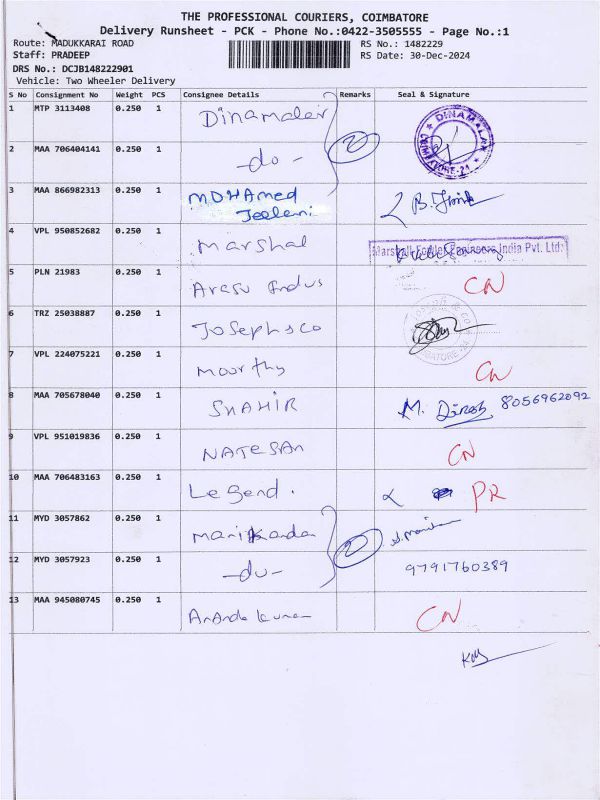 THE PROFESSIONAL COURIERS, COIMBATORE
Delivery Runsheet - PCK - Phone No.:0422-3505555 - Page No.:1
Route: MADUKKARAI ROAD
RS No.: 1482229
Staff: PRADEEP
RS Date: 30-Dec-2024
DRS No.: DCJB148222901
Vehicle: Two Wheeler Delivery
S No Consignment No Weight PCS Consignee Details Remarks Seal & Signature
1 MTP 3113408 0.250 1 Dinamalar DINAMALAR COIMBATORE-21
2 MAA 706404141 0.250 1 -do- 2
3 MAA 866982313 0.250 1 MOHAMed Jeelani
4 VPL 950852682 0.250 1 Marshal India Pvt. Ltd.
5 PLN 21983 0.250 1 Arasu Indus CN
6 TRZ 25038887 0.250 1 Josephsco
7 VPL 224075221 0.250 1 Moorthy CN
8 MAA 705678040 0.250 1 SHAHIR M. Dinesh 8056962092
9 VPL 951019836 0.250 1 NATESAN CN
10 MAA 706483163 0.250 1 Legend. PR
11 MYD 3057862 0.250 1 Manikandan 2
12 MYD 3057923 0.250 1 -do- 9791760389
13 MAA 945080745 0.250 1 Ananda kumar CN